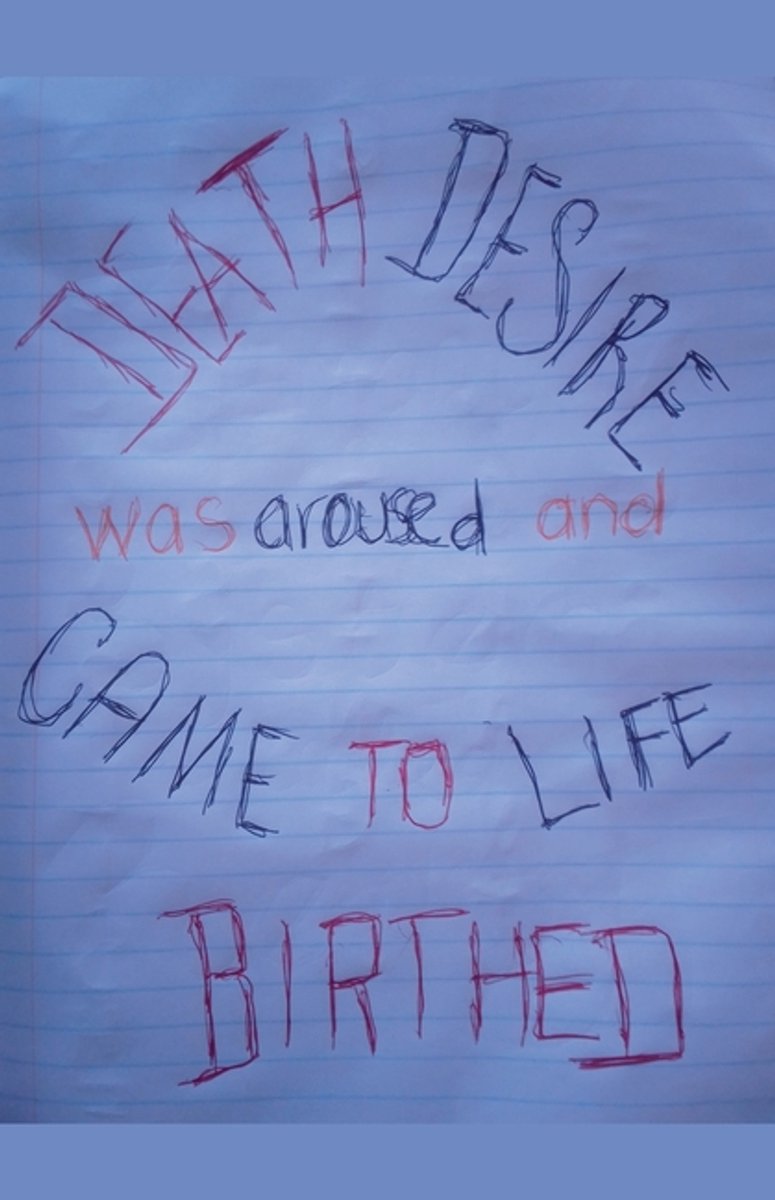 DEATH DESIRE
was aroused and
CAME TO LIFE
BIRTHED